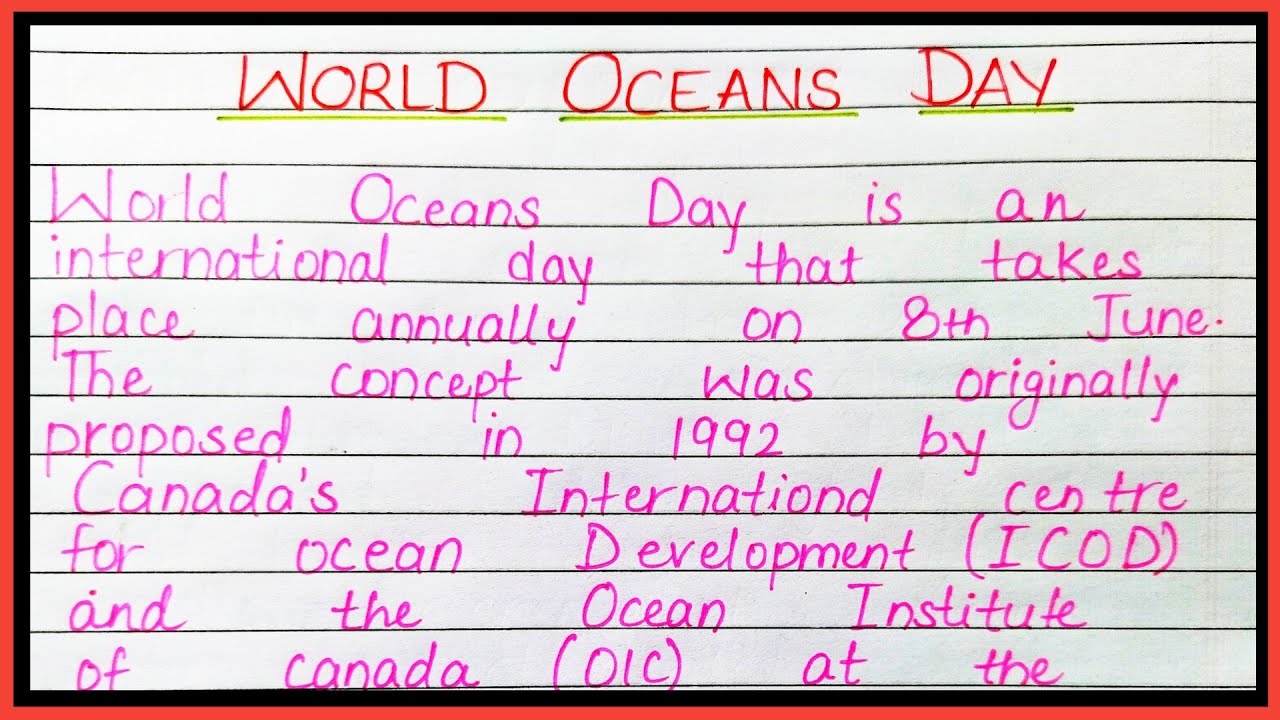 WORLD OCEANS DAY
World Oceans Day is an
international day that takes
place annually on 8th June.
The concept was originally
proposed in 1992 by
Canada's Internationd centre
for ocean Development (ICOD)
and the Ocean Institute
of canada (OIC) at the